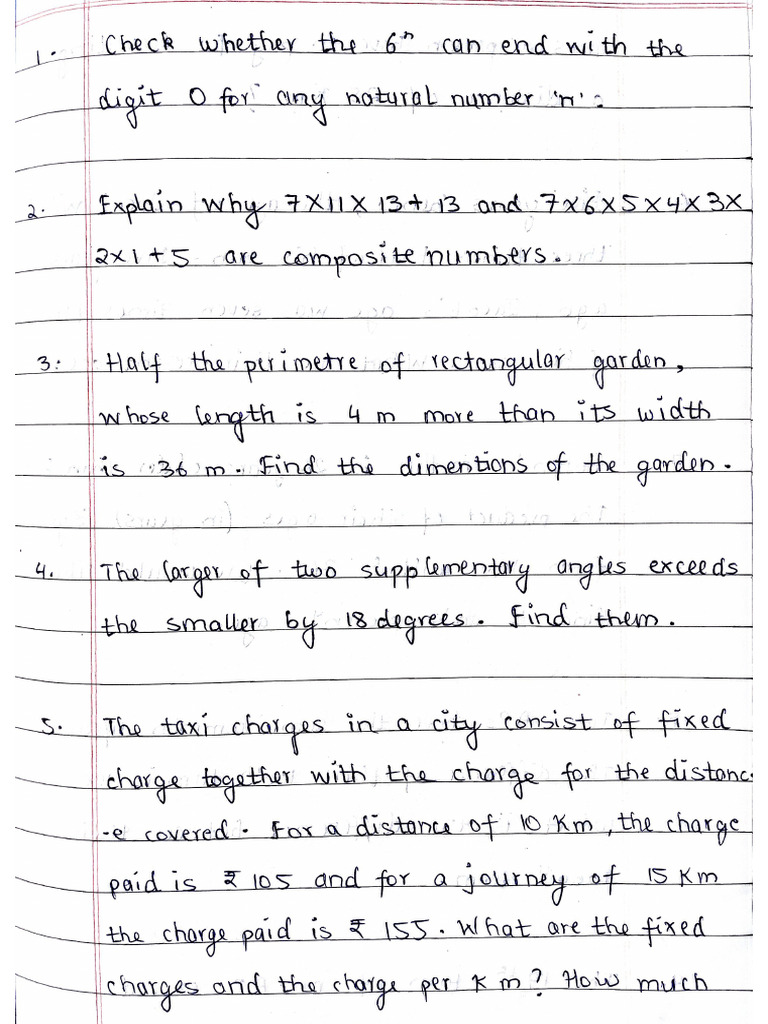 1. Check whether the 6ⁿ can end with the
digit 0 for any natural number 'n'.
2. Explain why 7×11×13+13 and 7×6×5×4×3×
2×1+5 are composite numbers.
3. Half the perimetre of rectangular garden,
whose length is 4 m more than its width
is 36 m. Find the dimentions of the garden.
4. The larger of two supplementary angles exceeds
the smaller by 18 degrees. Find them.
5. The taxi charges in a city consist of fixed
charge together with the charge for the distanc
-e covered. For a distance of 10 Km, the charge
paid is ₹ 105 and for a journey of 15 Km
the charge paid is ₹ 155. What are the fixed
charges and the charge per Km? How much